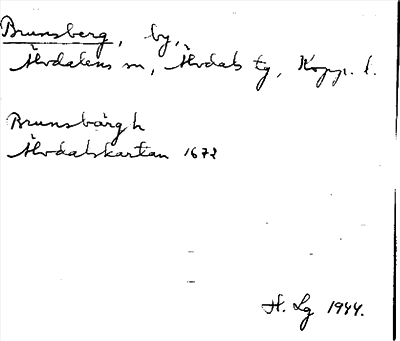 Brunsberg, by,
Älvdalens sn, Älvdals tg, Kopp. l.
Brunsbärgh
Älvdalskartan 1672
H. Lg 1944.